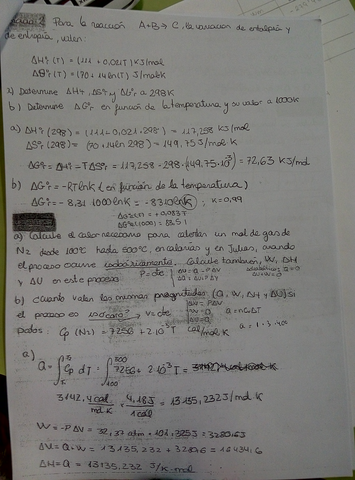 Para la reacción A+B → C, la variacion de entalpía y
de entropía, valen:
ΔHºr (T) = (111 + 0,021T) KJ/mol
ΔSºr (T) = (70 + 14 ln T) J/molK
a) Determine ΔHºr, ΔSºr y ΔGºr a 298K
b) Determine ΔGºr en función de la temperatura y su valor a 1000K
a) ΔHºr (298) = (111 + 0,021·298) = 117,258 KJ/mol
ΔSºr (298) = (70 + 14 ln 298) = 149,75 J/mol K
ΔGºr = ΔHºr - TΔSºr = 117,258 - 298·(149,75·10⁻³) = 72,63 KJ/mol
b) ΔGºr = -RT lnK (en función de la temperatura)
ΔGºr = -8,31·1000 lnK = -8310 lnK ; K = 0,99
a) Calcule el calor necesario para calentar un mol de gas de
N2 desde 100ºC hasta 500ºC, en calorías y en Julios, cuando
el proceso ocurre isobáricamente. Calcule también, W, ΔH
y ΔU en este proceso P = cte
b) Cuánto valen las mismas magnitudes (Q, W, ΔH y ΔU) si
el proceso es isócoro? V = cte
Datos: Cp (N2) = 7256 + 2·10⁻³T cal/mol K
a)
Q = ∫ Cp dT = ∫ 7256 + 2·10⁻³T =
3142,4 cal/mol·K · 4,18J/1cal = 13135,232 J/mol·K
W = -PΔV = 32,37 atm · 101,325J = 3280,63
ΔU = Q + W = 13135,232 + 3280,6 = 16434,6
ΔH = Q = 13135,232 J/K·mol